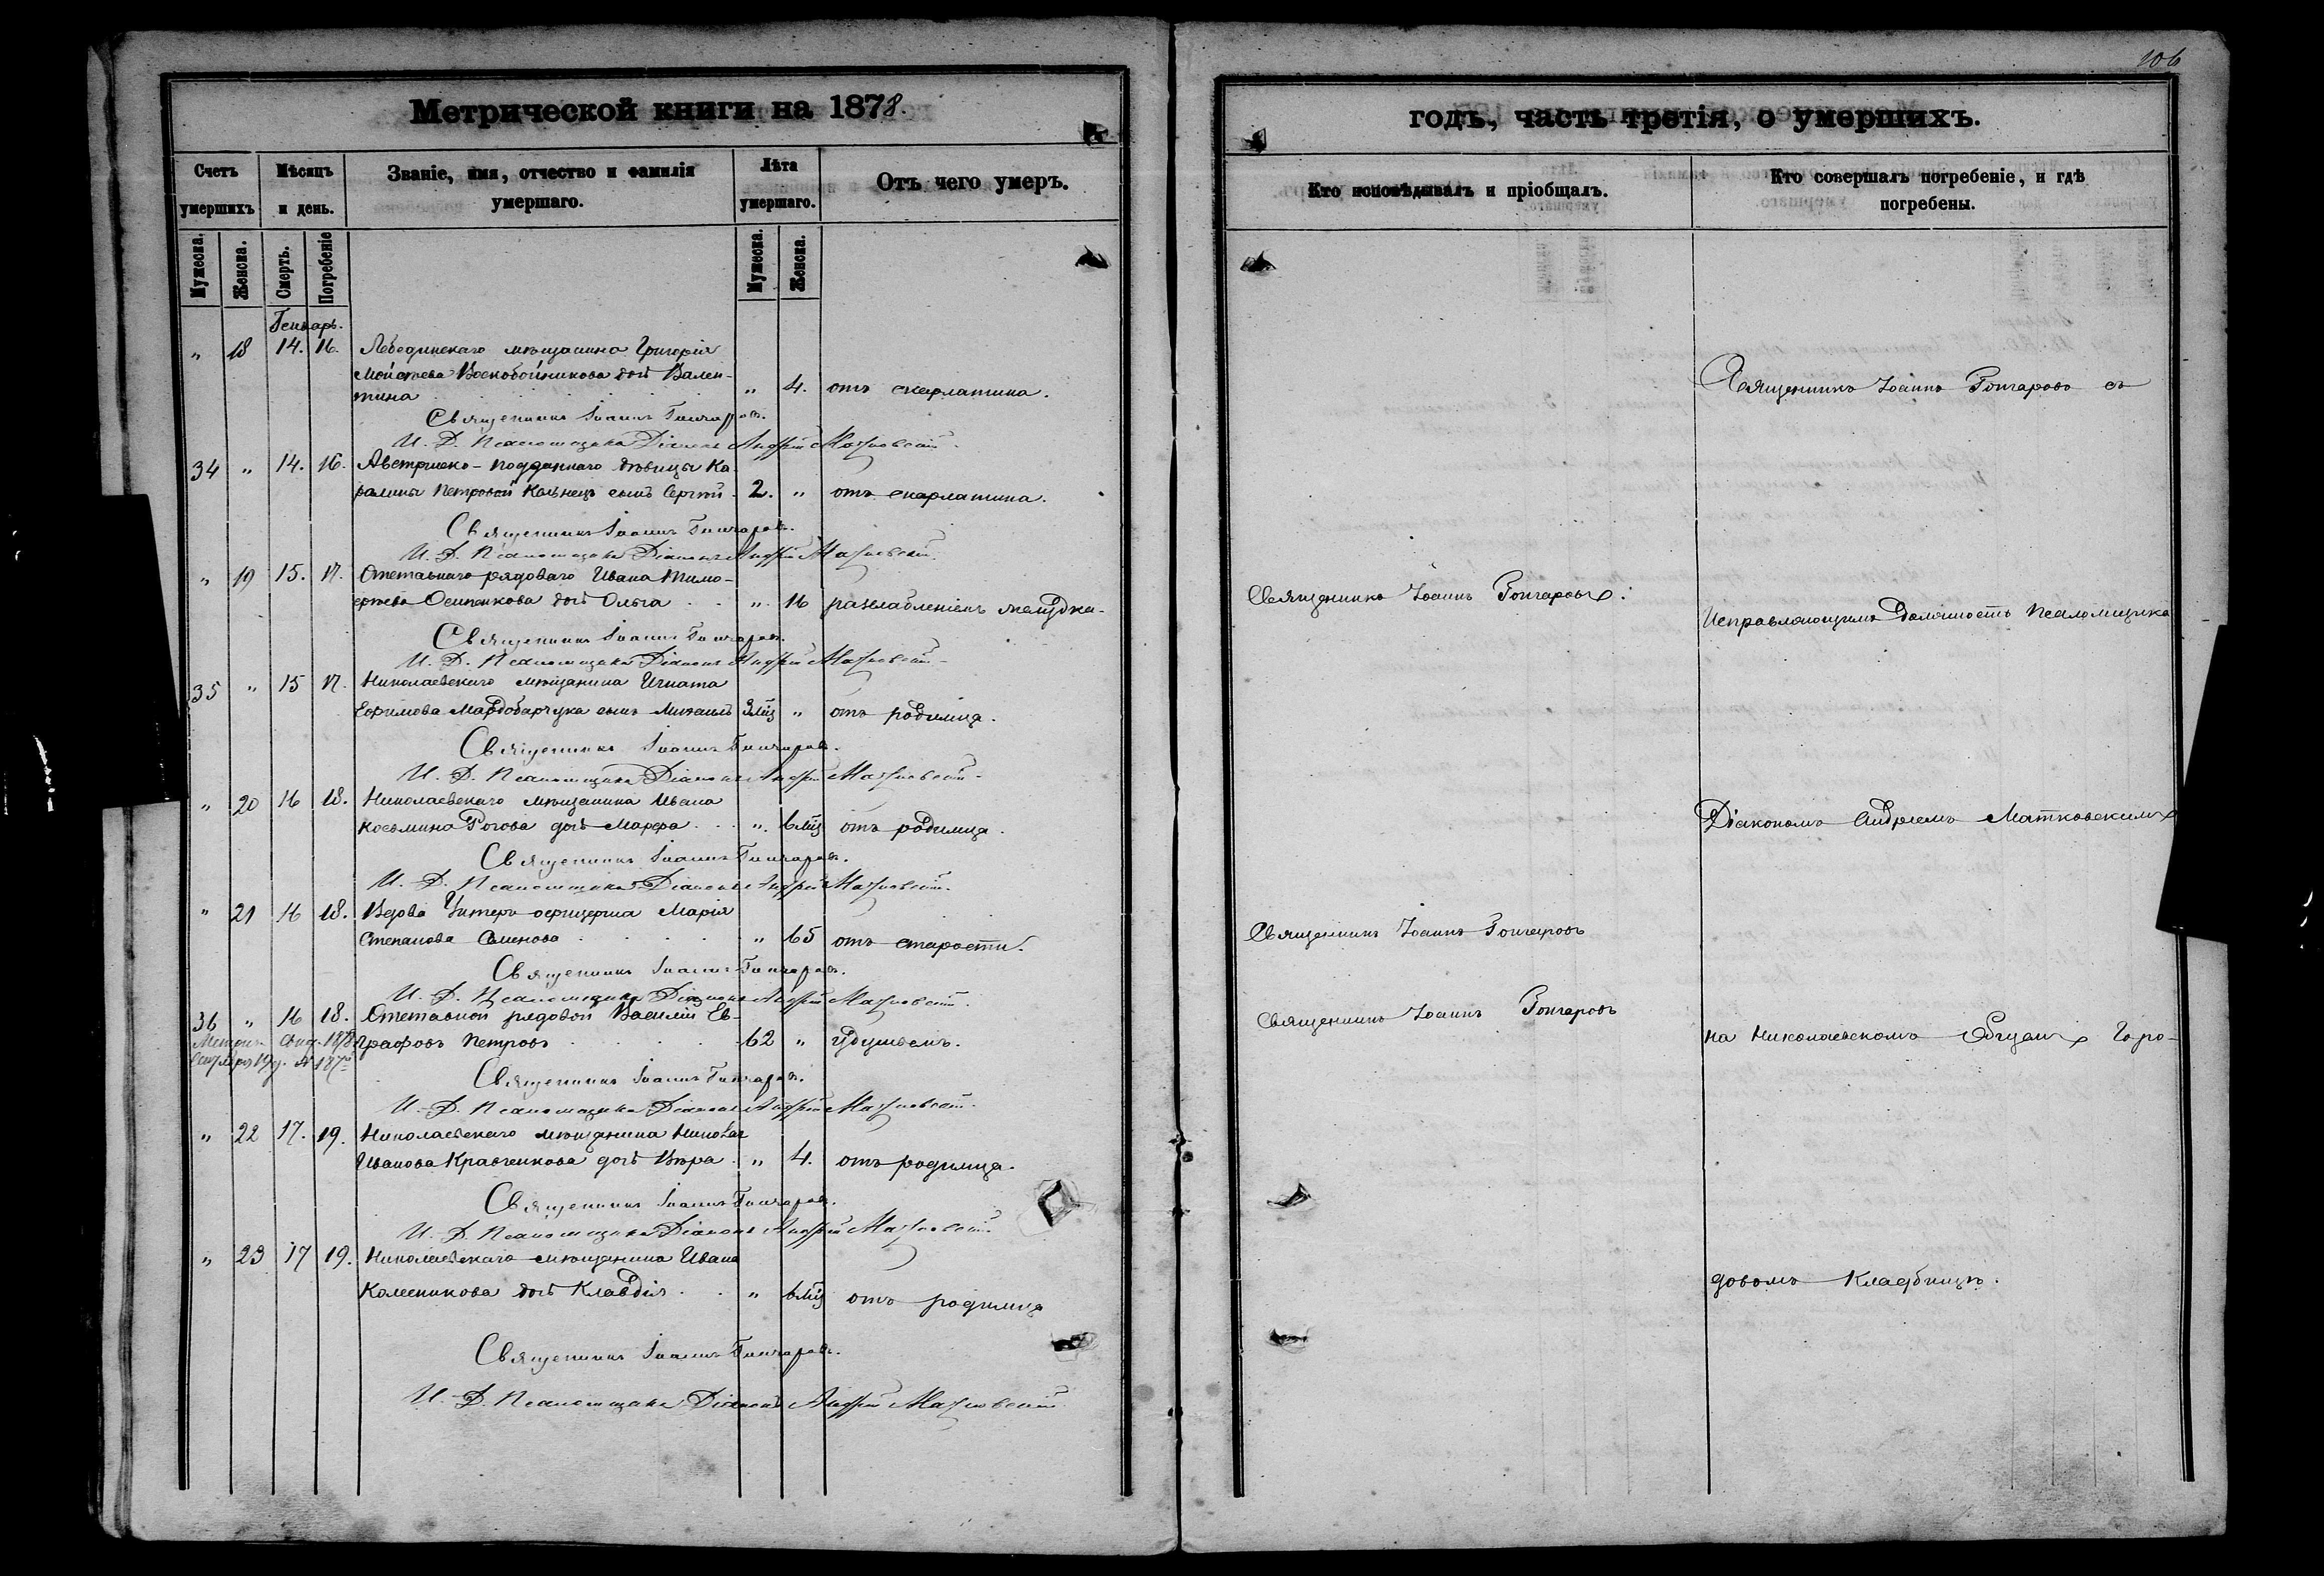 106
Метрической книги на 1878.
годъ, часть третія, о умершихъ.
Счетъ умершихъ
Мѣсяцъ и день.
Званіе, имя, отчество и фамилія умершаго.
Лѣта умершаго.
Отъ чего умеръ.
Кто исповѣдывалъ и пріобщалъ.
Кто совершалъ погребеніе, и гдѣ погребены.
Мужеска.
Женска.
Смерть.
Погребеніе
Мужеска.
Женска.
Генварь.
" 18 14. 16. Лебединскаго мѣщанина Григорія
Моисеева Воскобойникова дочь Вален-
тина " 4. отъ скарлатина.
Священникъ Іоаннъ Гончаровъ.
И. Д. Псаломщика Діаконъ Андрей Матковскій.
34 " 14. 16. Австрійско-подданнаго дѣвицы Ка-
ролины Петровой сынъ Сергій 2. " отъ скарлатина.
Священникъ Іоаннъ Гончаровъ.
И. Д. Псаломщика Діаконъ Андрей Матковскій.
" 19 15. 17. Отставнаго рядоваго Ивана Тимо-
феева Осипенкова дочь Ольга " 16 разслабленіемъ желудка.
Священникъ Іоаннъ Гончаровъ.
И. Д. Псаломщика Діаконъ Андрей Матковскій.
35 " 15 17. Николаевскаго мѣщанина Игната
Ефимова сынъ Михаилъ 3 мѣц " отъ родимца.
Священникъ Іоаннъ Гончаровъ.
И. Д. Псаломщика Діаконъ Андрей Матковскій.
" 20 16 18. Николаевскаго мѣщанина Ивана
Косьмина Рогова дочь Марфа ". 6 мѣц отъ родимца.
Священникъ Іоаннъ Гончаровъ.
И. Д. Псаломщика Діаконъ Андрей Матковскій.
" 21 16 18. Вдова Унтеръ-офицерша Марія
Степанова Семенова " 65 отъ старости.
Священникъ Іоаннъ Гончаровъ.
И. Д. Псаломщика Діаконъ Андрей Матковскій.
36 " 16 18. Отставной рядовой Василій Ев-
графовъ Петровъ 62 " удушьемъ.
Священникъ Іоаннъ Гончаровъ.
И. Д. Псаломщика Діаконъ Андрей Матковскій.
" 22 17. 19. Николаевскаго мѣщанина Николая
Иванова Кравченкова дочь Вѣра " 4. отъ родимца.
Священникъ Іоаннъ Гончаровъ.
И. Д. Псаломщика Діаконъ Андрей Матковскій.
" 23 17 19. Николаевскаго мѣщанина Ивана
Колесникова дочь Клавдія " 6 мѣц отъ родимца
Священникъ Іоаннъ Гончаровъ.
И. Д. Псаломщика Діаконъ Андрей Матковскій
Священникъ Іоаннъ Гончаровъ.
Священникъ Іоаннъ Гончаровъ
Священникъ Іоаннъ Гончаровъ
Священникъ Іоаннъ Гончаровъ съ
Исправляющимъ Должность Псаломщика
Діакономъ Андреемъ Матковскимъ
на Николаевскомъ Общемъ Горо-
довомъ Кладбищѣ.